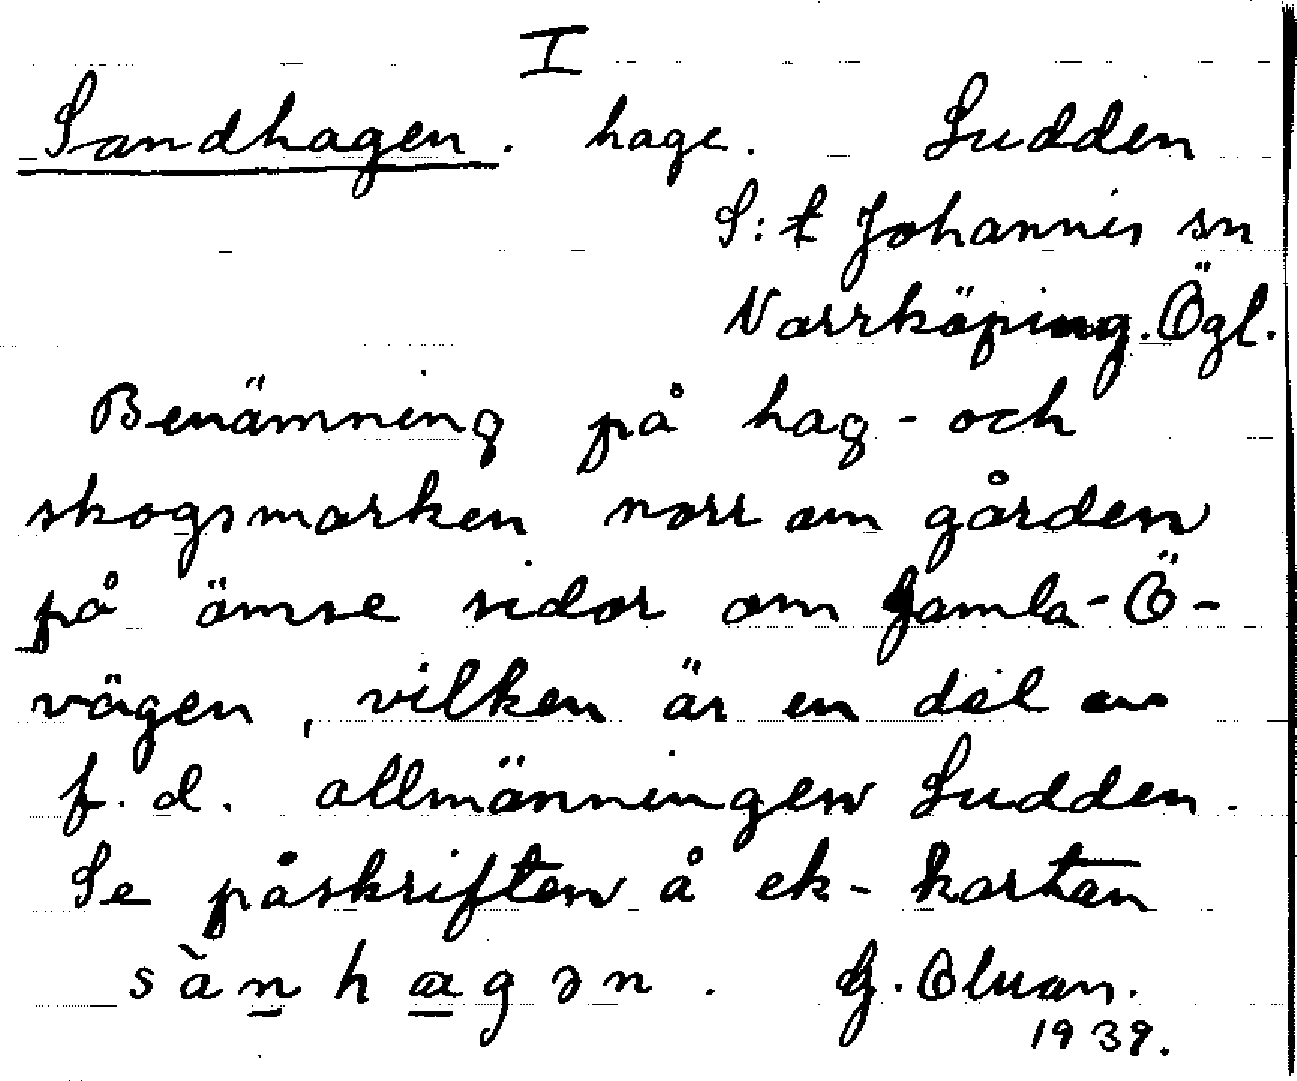 I
Sandhagen. hage. Sudden
S:t Johannis sn
Norrköping. Ögl.
Benämning på hag- och
skogsmarken norr om gården
på ömse sidor om Gamla-Ö-
vägen, vilken är en del av
f.d. allmänningen Sudden.
Se påskriften å ek-kartan
sànhagən. G.
1939.